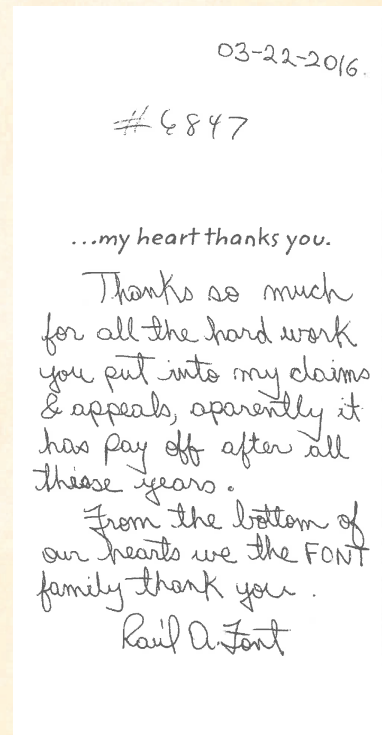 03-22-2016.
#6847
...my heart thanks you.
Thanks so much
for all the hard work
you put into my claims
& appeals, aparently it
has pay off after all
these years.
From the bottom of
our hearts we the FONT
family thank you.
Raúl A. Font